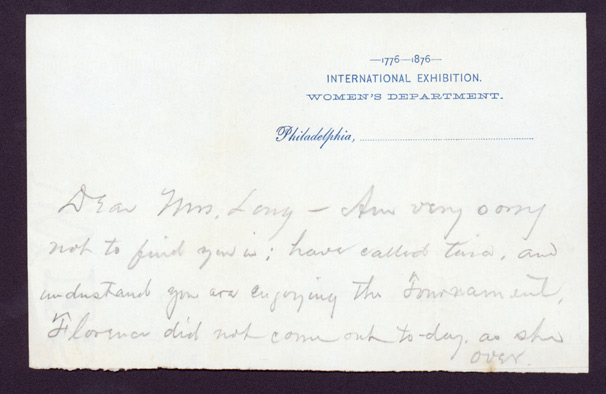 —1776—1876—
INTERNATIONAL EXHIBITION.
WOMEN'S DEPARTMENT.
Philadelphia,
Dear Mrs. Long – Am very sorry
not to find you in; have called twice, and
understand you are enjoying the Tournament.
Florence did not come out to-day, as she
over.